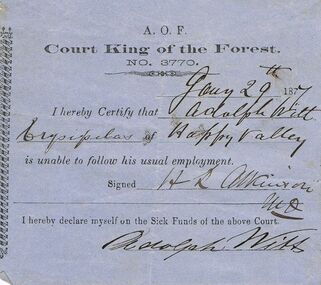 A. O. F.
Court King of the Forest.
NO. 3770.
Jany 29th 187
I hereby Certify that Adolph Witt
Erysipilas of Happy Valley
is unable to follow his usual employment.
Signed H L Atkinson
MD
I hereby declare myself on the Sick Funds of the above Court.
Adolph Witt